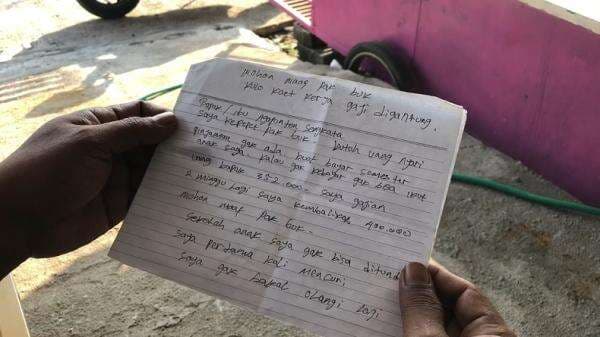 mohan maaf pak buk
kulo kaet kerja gaji digantung.
Bapak/ibu nyuwun sangkata
saya kepepet pak buk. butuh uang nyari
pinjaman gak ada buat bayar semester
anak saya kalau gak bebayar gak bisa ikut
uang bapak 352.000 saya gajian
2 minggu lagi saya kembalikan 400.000
mohan maaf pak buk.
sekolah anak saya gak bisa ditunda
saya pertama kali mencuri
saya gak bakal olangi lagi